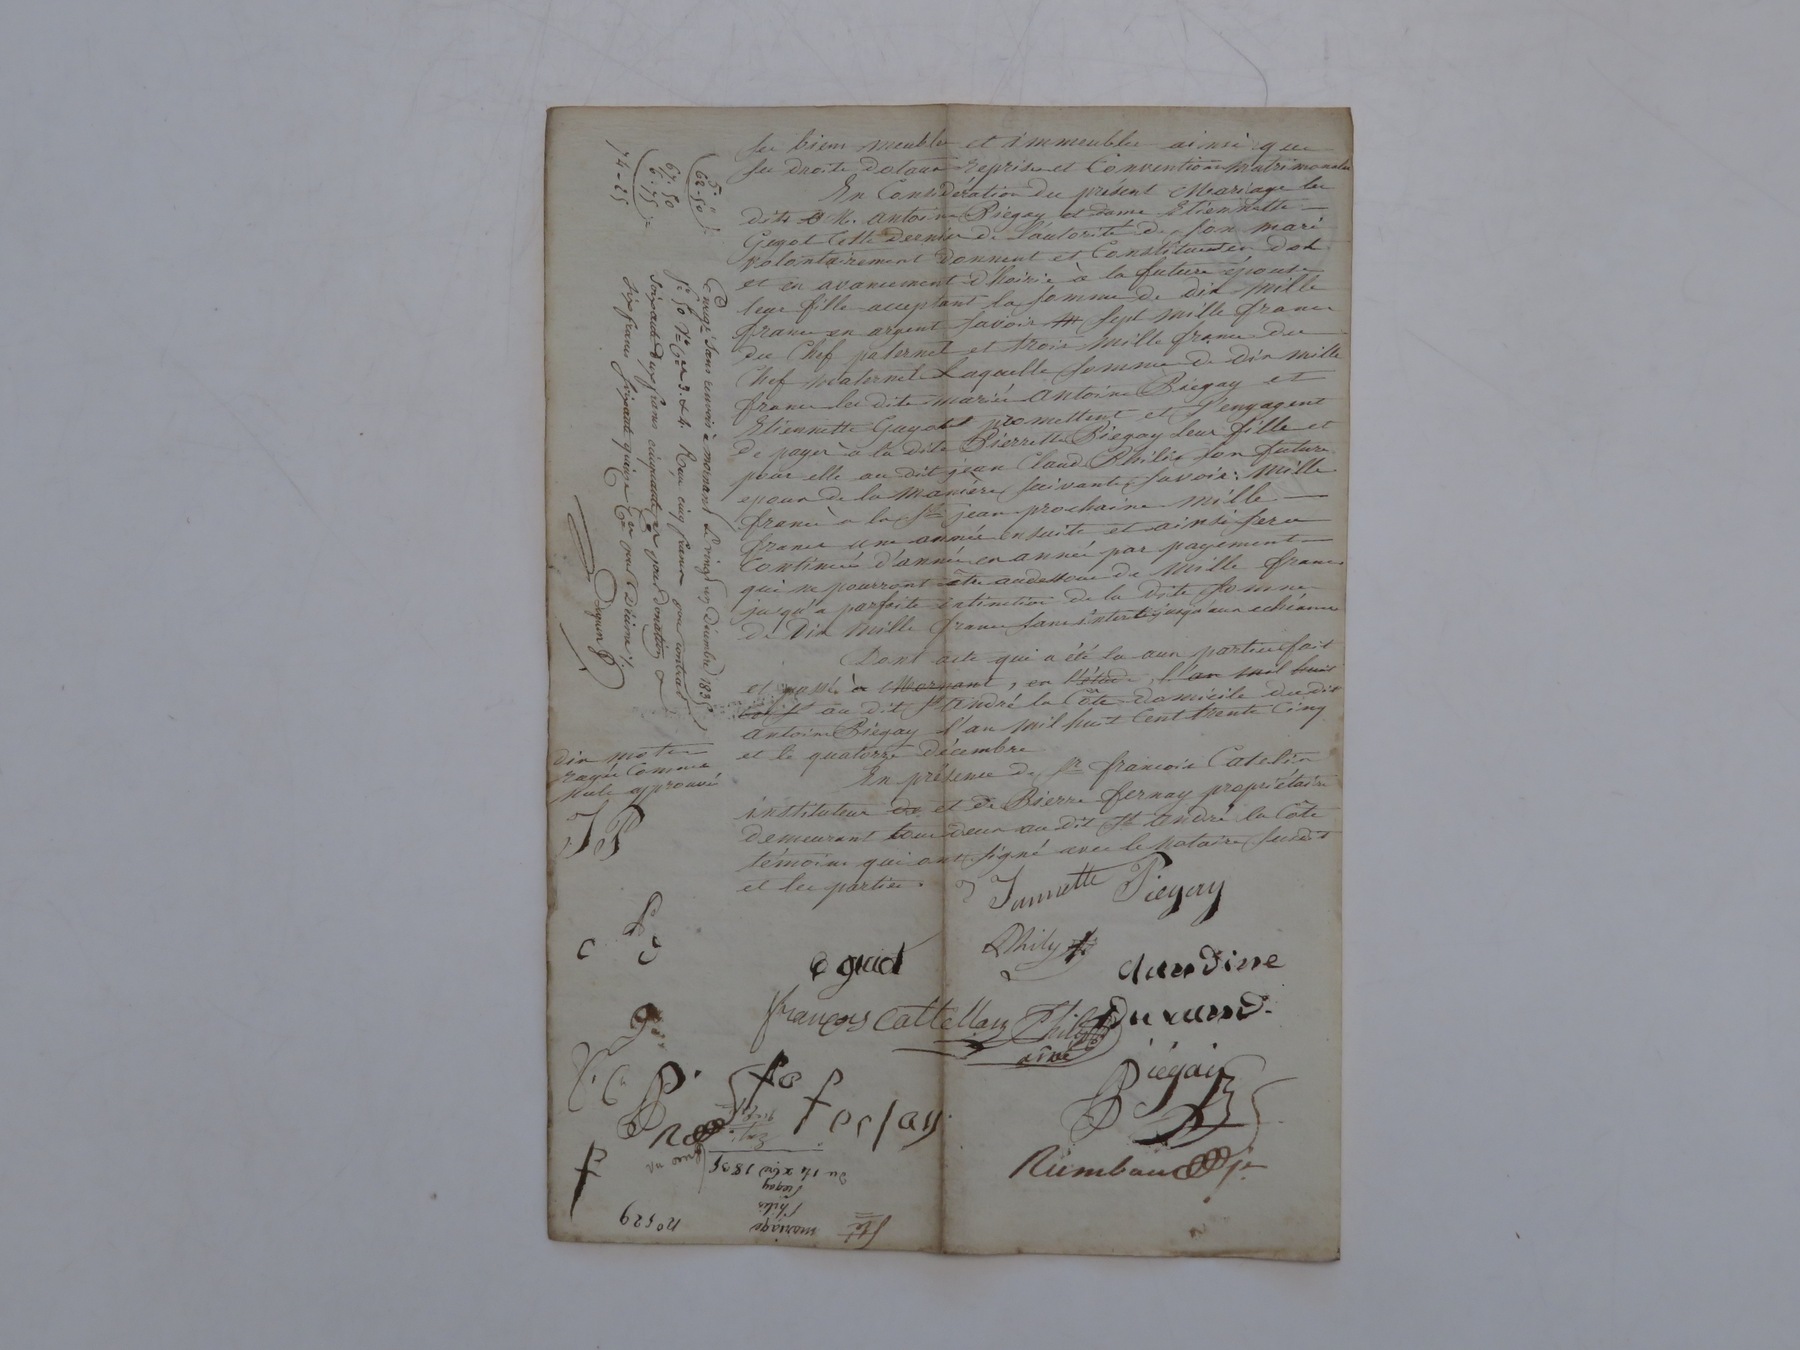 ses biens meubles et immeubles ainsi que
ses droits dotaux Reprises et Conventions Matrimoniales
En Considération du présent Mariage les
dits Antoine Piégay et dame Etiennette
Guyot cette dernière de l'autorité de son mari
volontairement donnent et Constituent en dot
et en avancement d'hoirie à la future épouse
leur fille acceptant la somme de dix mille
francs en argent savoir sept mille francs
du Chef paternel et trois mille francs du
Chef maternel Laquelle somme de dix mille
francs les dits mariés Antoine Piégay et
Etiennette Guyot promettent et s'engagent
de payer à la dite Pierrette Piegay leur fille et
pour elle au dit jean Claude Philis son futur
epoux de la manière suivante, savoir: Mille
francs à la St jean prochaine mille
francs une année ensuite et ainsi sera
Continué d'année en année par payement
qui ne pourront être audessous de mille francs
jusqu'a parfaite extinction de la dite somme
de Dix mille francs sans intérêts jusqu'aux échéances
Dont acte qui a été lu aux parties fait
et passé à Mornant, en l'étude, l'an mil huit
au dit St André la Côte domicile du dit
antoine Piégay l'an Mil huit Cent trente Cinq
et le quatorze décembre
En présence de Sr francois Catelin
instituteur et de Pierre fernay propriétaire
demeurant tous deux au dit St andré la Côte
témoins qui ont signé avec le Notaire susdit
et les parties.
5"
62-50
67.50
6.75
74-25
Enregé sans renvoi à mornant le vingt un Décembre 1835
fo 50 Vo Ces 3. et 4. Reçu cinq francs pour contrat
soixante deux francs cinquante ces pour donation &
six francs soixante quinze Ces pour Décime
dix mots
rayés Comme
nuls approuvé
J P
Jannette Piegay
Phily
claudine
guiot
françois Cattellain
Philis
ainé
Durand
Piégay
ferlay
Rimbaud
nº 529
mariage
Philis
Piegay
du 14 xbre 1835